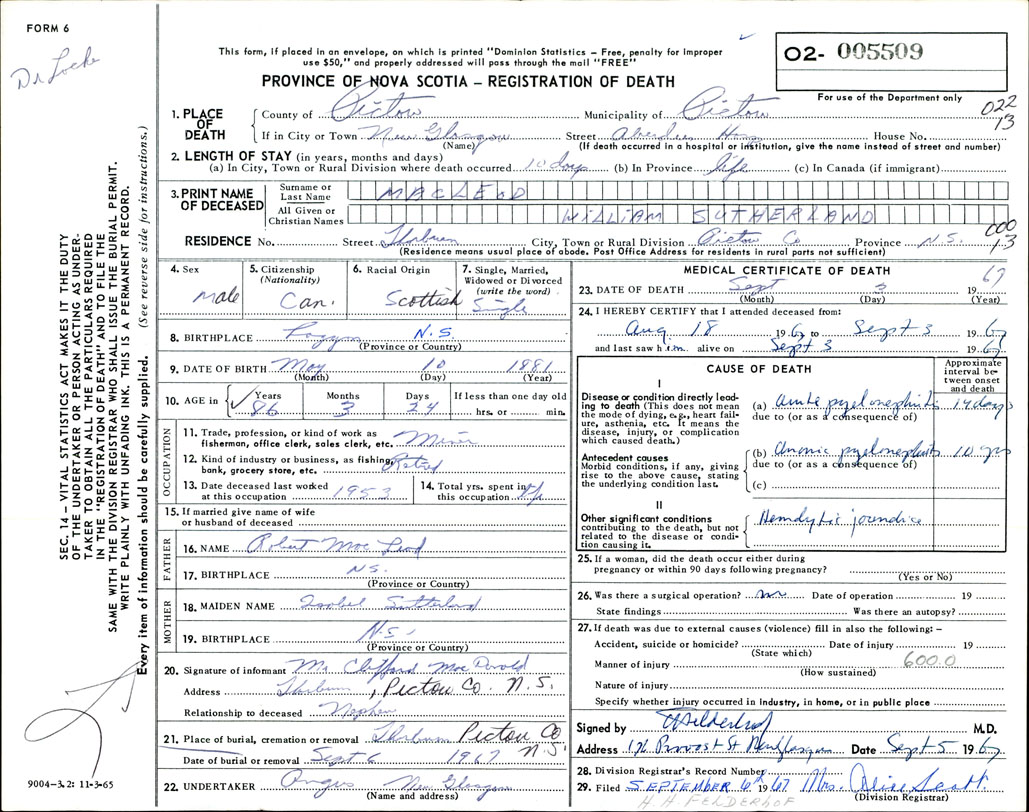 FORM 6
Dr Locke
This form, if placed in an envelope, on which is printed "Dominion Statistics – Free, penalty for improper
use $50," and properly addressed will pass through the mail "FREE"
PROVINCE OF NOVA SCOTIA – REGISTRATION OF DEATH
02- 005509
For use of the Department only
022
13
1. PLACE OF DEATH
County of Pictou Municipality of Pictou
If in City or Town New Glasgow Street Aberdeen Hosp House No.
(Name) (If death occurred in a hospital or institution, give the name instead of street and number)
2. LENGTH OF STAY (in years, months and days)
(a) In City, Town or Rural Division where death occurred 10 days (b) In Province life (c) In Canada (if immigrant)
3. PRINT NAME OF DECEASED
Surname or Last Name MACLEOD
All Given or Christian Names WILLIAM SUTHERLAND
000
13
RESIDENCE No. Street Thorburn City, Town or Rural Division Pictou Co Province N.S.
(Residence means usual place of abode. Post Office Address for residents in rural parts not sufficient)
4. Sex Male
5. Citizenship (Nationality) Can.
6. Racial Origin Scottish
7. Single, Married, Widowed or Divorced (write the word) Single
8. BIRTHPLACE N.S.
(Province or Country)
9. DATE OF BIRTH May 10 1881
(Month) (Day) (Year)
10. AGE in Years 86 Months 3 Days 24 If less than one day old hrs. or min.
OCCUPATION
11. Trade, profession, or kind of work as fisherman, office clerk, sales clerk, etc. Miner
12. Kind of industry or business, as fishing, bank, grocery store, etc. Retired
13. Date deceased last worked at this occupation 1953
14. Total yrs. spent in this occupation
15. If married give name of wife or husband of deceased
FATHER
16. NAME Robert Mac Leod
17. BIRTHPLACE N.S.
(Province or Country)
MOTHER
18. MAIDEN NAME Isobel Sutherland
19. BIRTHPLACE N.S.
(Province or Country)
20. Signature of informant Mr Clifford Mac Donald
Address Thorburn, Pictou Co. N.S.
Relationship to deceased Nephew
21. Place of burial, cremation or removal Thorburn Pictou Co N.S.
Date of burial or removal Sept 6 1967
22. UNDERTAKER Angus New Glasgow
(Name and address)
MEDICAL CERTIFICATE OF DEATH
23. DATE OF DEATH Sept 3 1967
(Month) (Day) (Year)
24. I HEREBY CERTIFY that I attended deceased from:
Aug 18 1967 to Sept 3 1967
and last saw him alive on Sept 3 1967
CAUSE OF DEATH
Approximate interval between onset and death
I
Disease or condition directly leading to death (This does not mean the mode of dying, e.g., heart failure, asthenia, etc. It means the disease, injury, or complication which caused death.)
(a) Acute pyelonephritis 14 days
due to (or as a consequence of)
Antecedent causes
Morbid conditions, if any, giving rise to the above cause, stating the underlying condition last.
(b) Chronic pyelonephritis 10 yrs
due to (or as a consequence of)
(c)
II
Other significant conditions
contributing to the death, but not related to the disease or condition causing it.
Hemolytic jaundice
25. If a woman, did the death occur either during pregnancy or within 90 days following pregnancy?
(Yes or No)
26. Was there a surgical operation? no Date of operation 19
State findings Was there an autopsy?
27. If death was due to external causes (violence) fill in also the following: –
Accident, suicide or homicide? Date of injury 19
(State which)
Manner of injury 600.0
(How sustained)
Nature of injury
Specify whether injury occurred in industry, in home, or in public place
Signed by HFelderhof M.D.
Address Provost St New Glasgow Date Sept 5 1967
28. Division Registrar's Record Number
29. Filed SEPTEMBER 6th 1967 Mrs. Alice Scott
(Division Registrar)
H H FELDERHOF
SEC. 14 – VITAL STATISTICS ACT MAKES IT THE DUTY
OF THE UNDERTAKER OR PERSON ACTING AS UNDER-
TAKER TO OBTAIN ALL THE PARTICULARS REQUIRED
IN THE "REGISTRATION OF DEATH" AND TO FILE THE
SAME WITH THE DIVISION REGISTRAR WHO SHALL ISSUE THE BURIAL PERMIT.
WRITE PLAINLY WITH UNFADING INK. THIS IS A PERMANENT RECORD.
Every item of information should be carefully supplied. (See reverse side for instructions.)
9004-3.2: 11-3-65